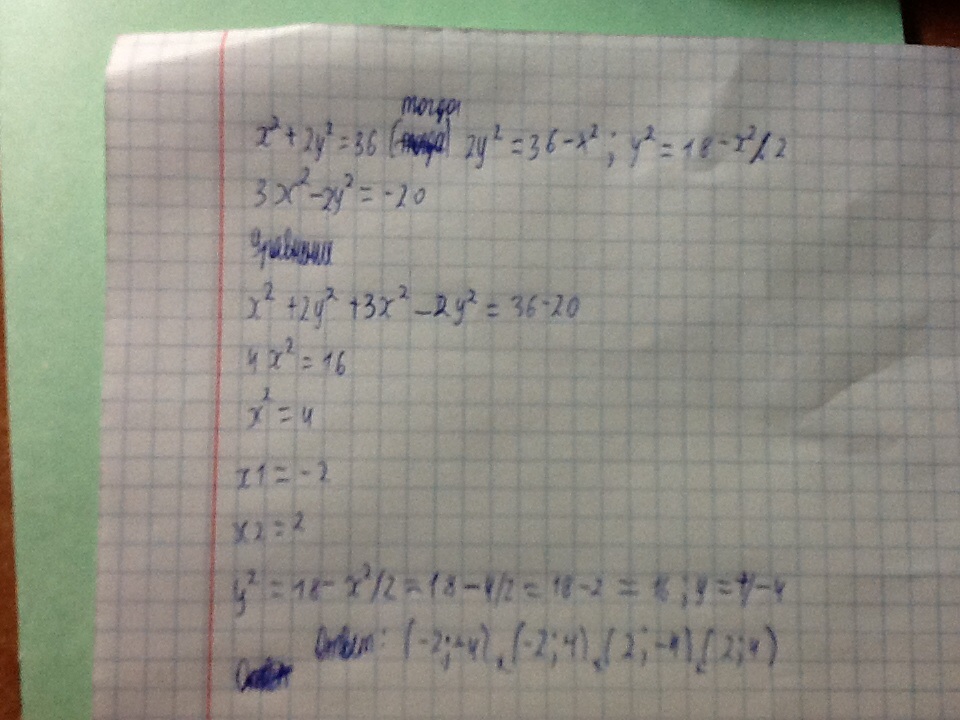 x² + 2y² = 36 тогда 2y² = 36 - x² ; y² = 18 - x²/2
3x² - 2y² = -20
x² + 2y² + 3x² - 2y² = 36 - 20
4x² = 16
x² = 4
x1 = -2
x2 = 2
y² = 18 - x²/2 = 18 - 4/2 = 18 - 2 = 16 ; y = +/- 4
Ответ: (-2; -4), (-2; 4), (2; -4), (2; 4)